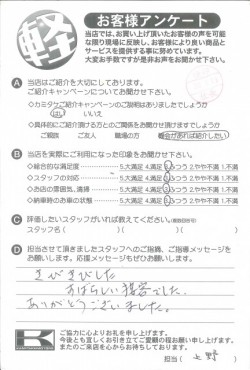 軽
お客様アンケート
当店では、お買い上げ頂いたお客様の声を可能
な限り現場に反映し、お客様により良い商品と
サービスを提供する事に努めています。
大変お手数ですが是非お声をお聞かせ下さい。
A 当店はご紹介を大切にしております。
ご紹介キャンペーンについてお聞かせ下さい
・カミタケご紹介キャンペーンのご説明はありましたでしょうか
はい いいえ
・具体的にご紹介頂ける方とのご関係をお聞かせ頂けますでしょうか
ご親族 ご友人 職場の方 機会があれば紹介したい
B 当店を実際にご利用になった印象をお聞かせ下さい。
・総合的な満足度 5.大満足 4.満足 3.ふつう 2.やや不満 1.不満
・スタッフの対応 5.大満足 4.満足 3.ふつう 2.やや不満 1.不満
・お店の雰囲気、清掃 5.大満足 4.満足 3.ふつう 2.やや不満 1.不満
・納車時のお車の状態 5.大満足 4.満足 3.ふつう 2.やや不満 1.不満
C 評価したいスタッフがいれば教えてください。(複数回答可)
スタッフ名( )( )( )
D 担当させて頂きましたスタッフへのご指摘、ご指導メッセージを
お願いします。応援メッセージもぜひお願いします。
きびきびした
すばらしい接客でした。
ありがとうございました。
ご協力に心よりお礼を申し上げます。
今後とも宜しくお引き立てご愛顧の程お願い申し上げます。
またのご来店を心からお待ちしております。
担当( 上野 )